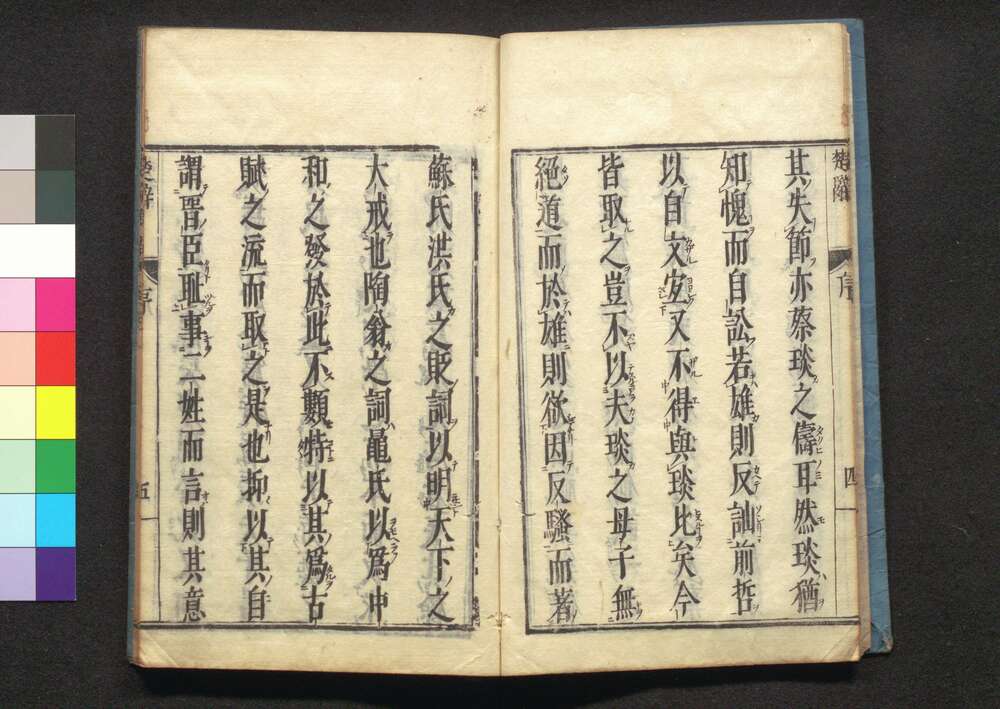 楚辭
序
四
其失節亦蔡琰之儔耳然琰猶
知愧而自訟若雄則反訕前哲
以自文宜又不得與琰比矣今
皆取之豈不以夫琰之母子無
絕道而於雄則欲因反騷而著
蘇氏洪氏之貶詞以明天下之
大戒也陶翁之詞鼂氏以爲中
和之發於此不類特以其爲古
賦之流而取之是也抑以其自
謂晋臣耻事二姓而言則其意
楚辭
序
五